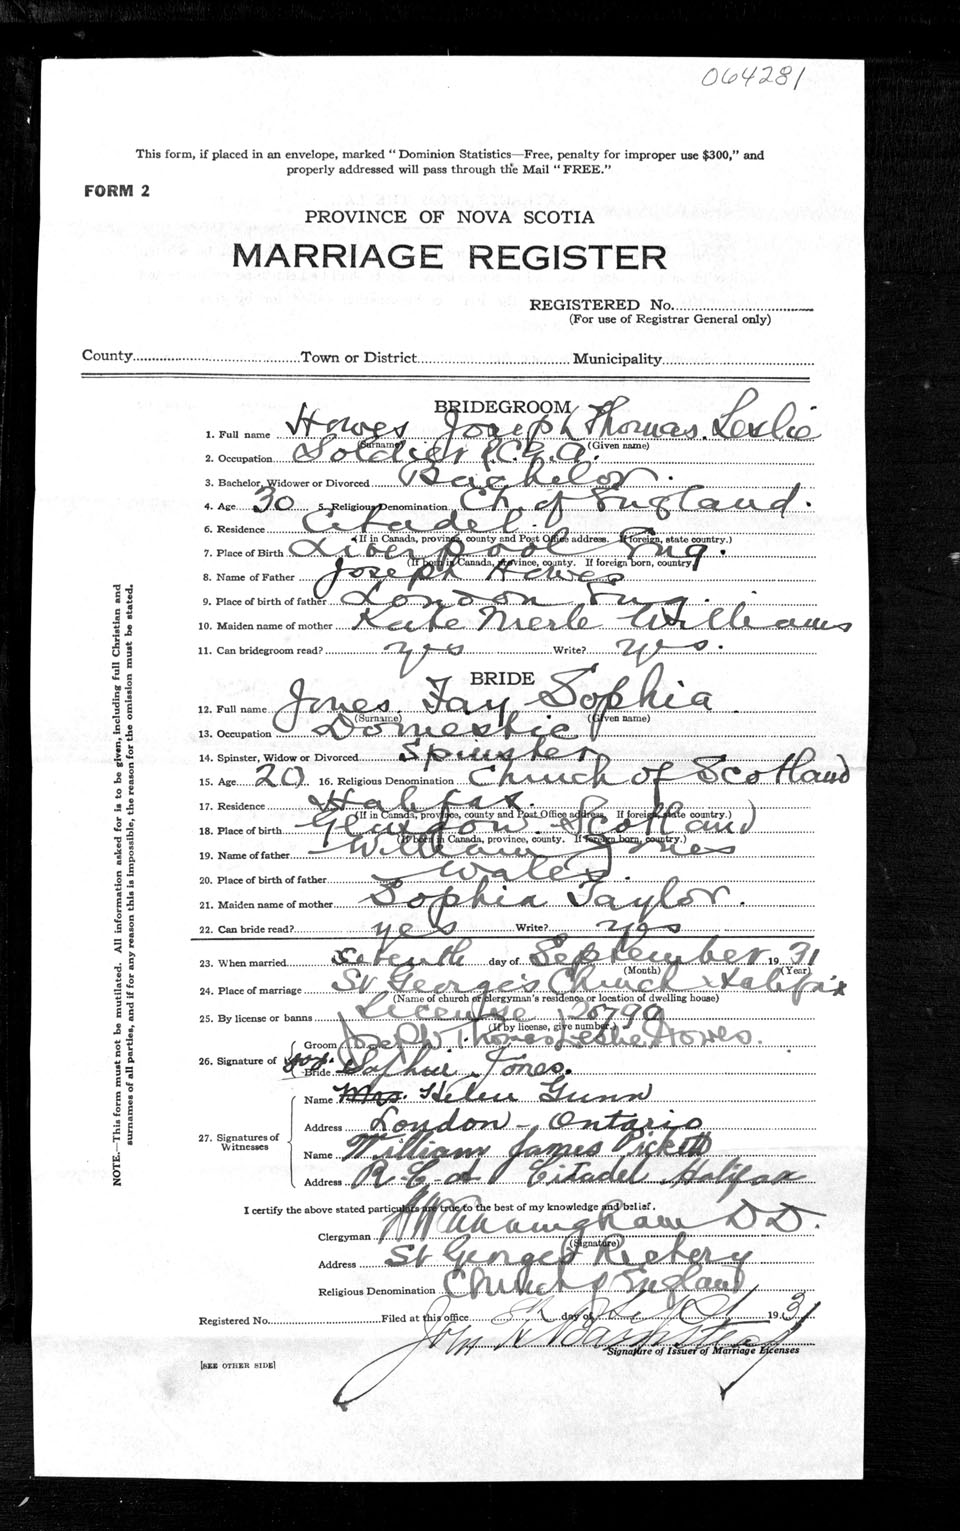 064281
This form, if placed in an envelope, marked “ Dominion Statistics—Free, penalty for improper use $300,” and
properly addressed will pass through the Mail “ FREE.”
FORM 2
PROVINCE OF NOVA SCOTIA
MARRIAGE REGISTER
REGISTERED No.
(For use of Registrar General only)
County Town or District Municipality
BRIDEGROOM
1. Full name Howes Joseph Thomas Leslie
(Surname) (Given name)
2. Occupation Soldier R.C.A.
3. Bachelor, Widower or Divorced Bachelor.
4. Age 30 5. Religious Denomination Ch. of England.
6. Residence Citadel.
(If in Canada, province, county and Post Office address. If foreign, state country.)
7. Place of Birth Liverpool Eng.
(If born in Canada, province, county. If foreign born, country)
8. Name of Father Joseph Howes
9. Place of birth of father London Eng.
10. Maiden name of mother Kate Merle Williams
11. Can bridegroom read? yes Write? yes.
BRIDE
12. Full name Jones Fay Sophia
(Surname) (Given name)
13. Occupation Domestic
14. Spinster, Widow or Divorced Spinster
15. Age 20 16. Religious Denomination Church of Scotland
17. Residence Halifax.
(If in Canada, province, county and Post Office address. If foreign, state country.)
18. Place of birth Glasgow Scotland
(If born in Canada, province, county. If foreign born, country.)
19. Name of father William Jones
20. Place of birth of father Wales.
21. Maiden name of mother Sophia Taylor.
22. Can bride read? yes Write? yes
23. When married Seventh day of September 1931
(Month) (Year)
24. Place of marriage St George's Church Halifax
(Name of church or clergyman's residence or location of dwelling house)
25. By license or banns License 20790
(If by license, give number.)
26. Signature of
Groom Joseph Thomas Leslie Howes.
Bride Sophia Jones.
27. Signatures of Witnesses
Name Mrs. Helen Gunn
Address London - Ontario
Name William James Pickett
Address R-C-A Citadel Halifax
I certify the above stated particulars are true to the best of my knowledge and belief.
Clergyman Cunningham D D.
(Signature)
Address St Georges Rectory
Religious Denomination Church of England
Registered No. Filed at this office 8th day of Sept 1931
John Barnstead
Signature of Issuer of Marriage Licenses
[SEE OTHER SIDE]
NOTE.—This form must not be mutilated. All information asked for is to be given, including full Christian and
surnames of all parties, and if for any reason this is impossible, the reason for the omission must be stated.